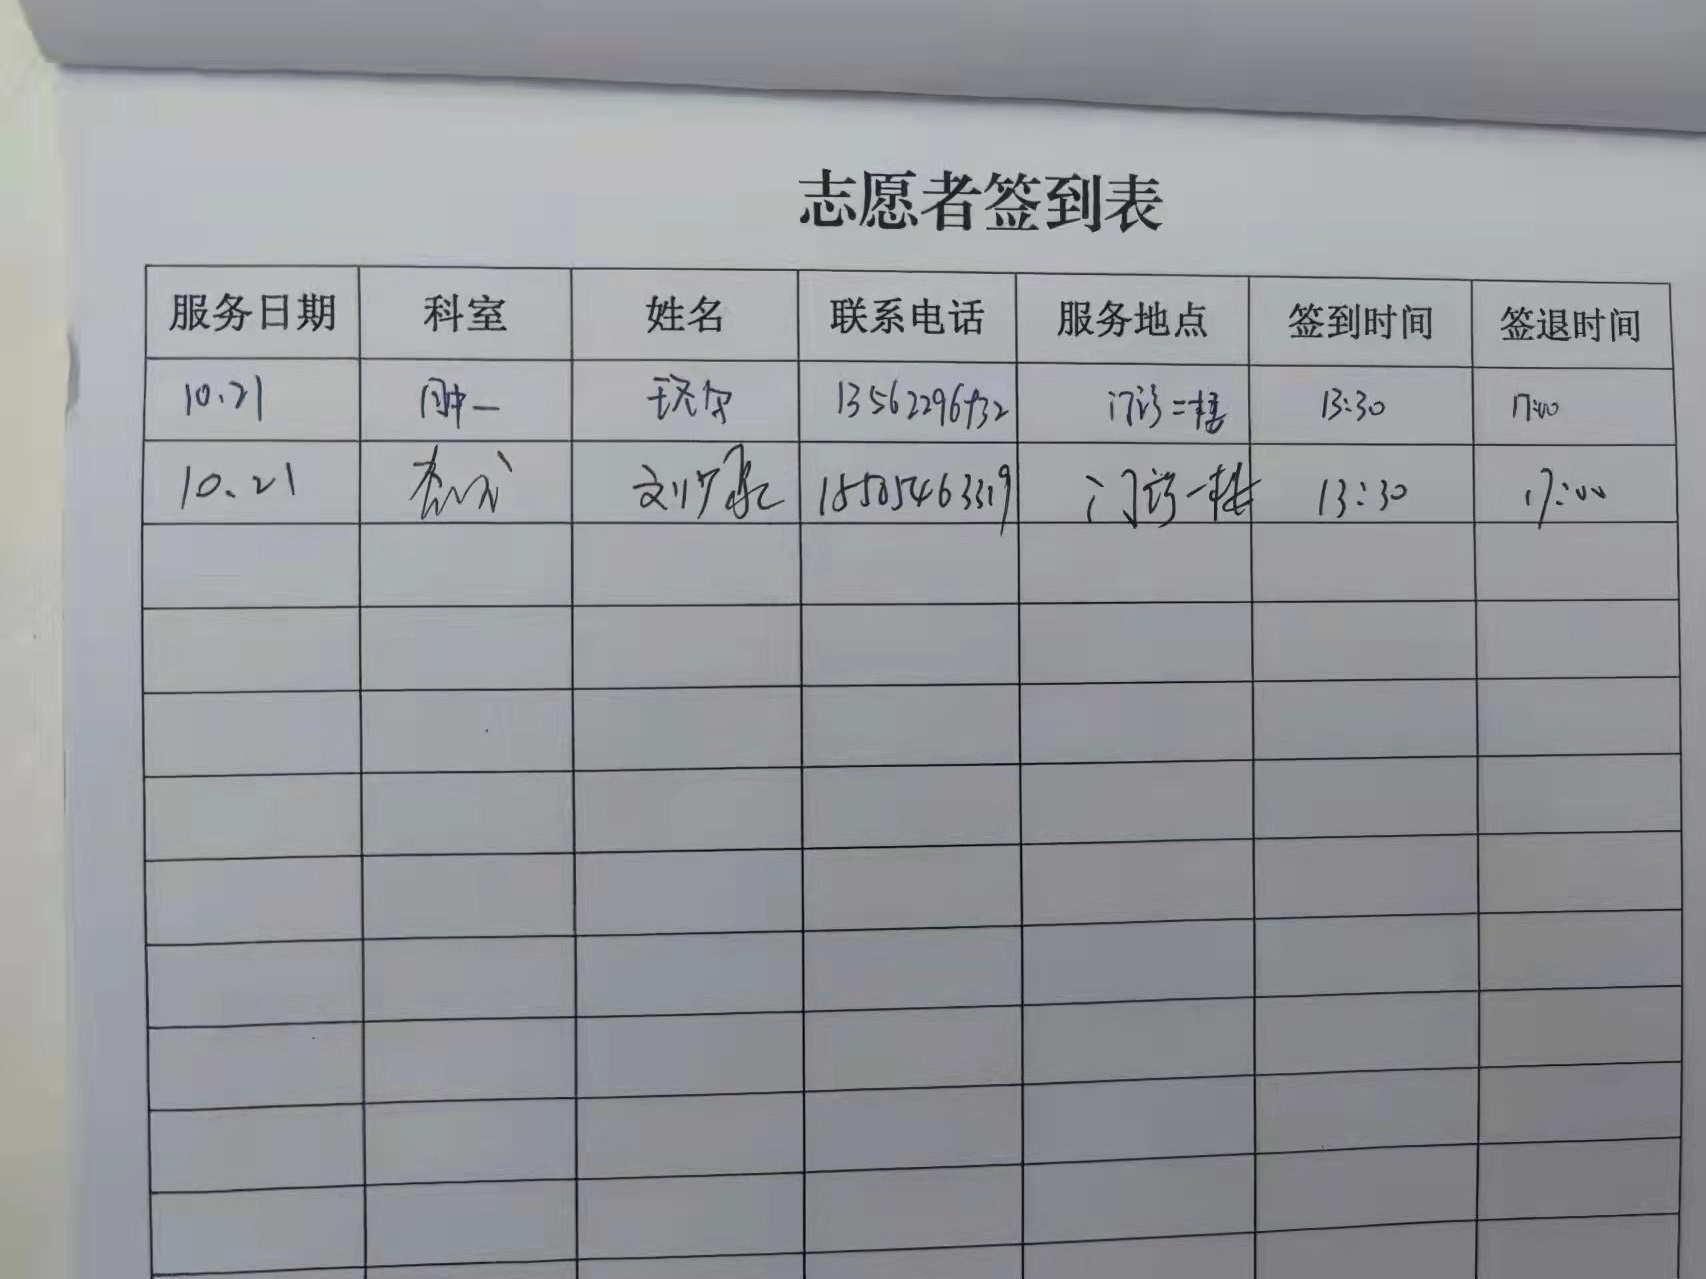 志愿者签到表
服务日期 科室 姓名 联系电话 服务地点 签到时间 签退时间
10.21 肿一 13562296932 门诊二楼 13:30 17:00
10.21 18505463319 门诊一楼 13:30 17:00